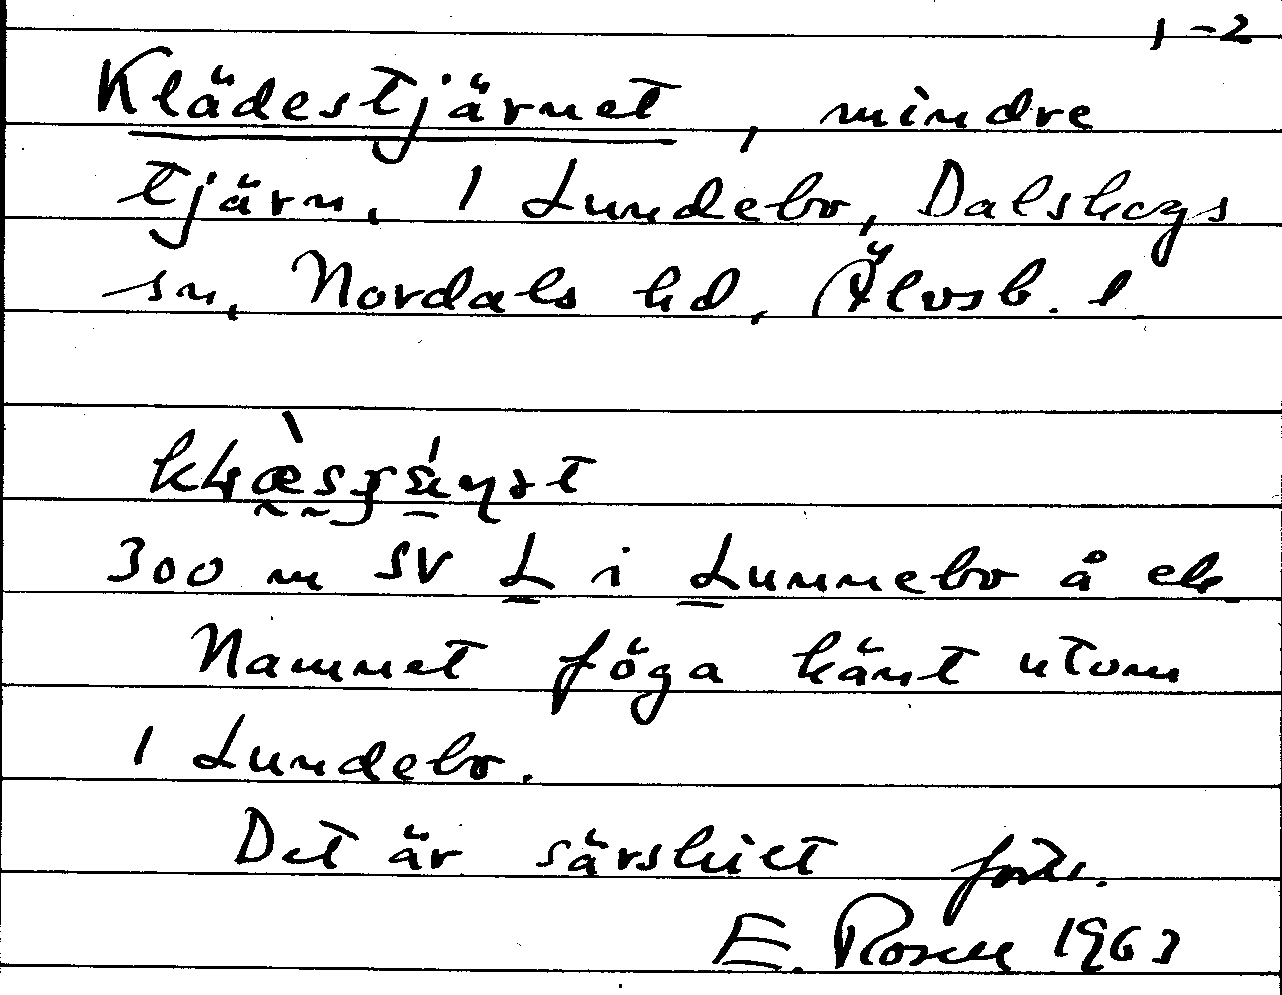 1-2
Klädestjärnet, mindre
tjärn, 1 Lundebo, Dalskogs
sn, Nordals hd, Älvsb. l
300 m SV L i Lunnebo å ek.
Namnet föga känt utom
1 Lundebo.
Det är särskilt forts.
E. Rosell 1963